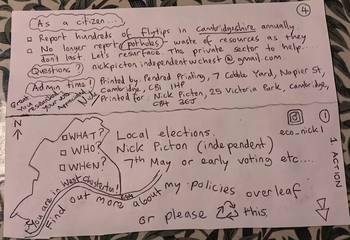 ④
As a citizen...
□ Report hundreds of flytips in Cambridgeshire annually
□ No longer report potholes - waste of resources as they
dont last. Let's resurface. The private sector to help...
Questions? nickpictonindependentwchest@gmail.com
Admin time! Printed by: Pendred Printing, 7 Cobble Yard, Napier St,
Cambridge, CB1 1HP
Printed for: Nick Picton, 25 Victoria Park, Cambridge,
CB4 3EJ
Great
You
researched
your vote
N
□ WHAT? Local elections.
□ WHO? Nick Picton (independent)
□ WHEN? 7th May or early voting etc....
eco_nick1
1. ACTION
You are in West Chesterton!
Find out more about my policies overleaf
or please ♻ this.
①